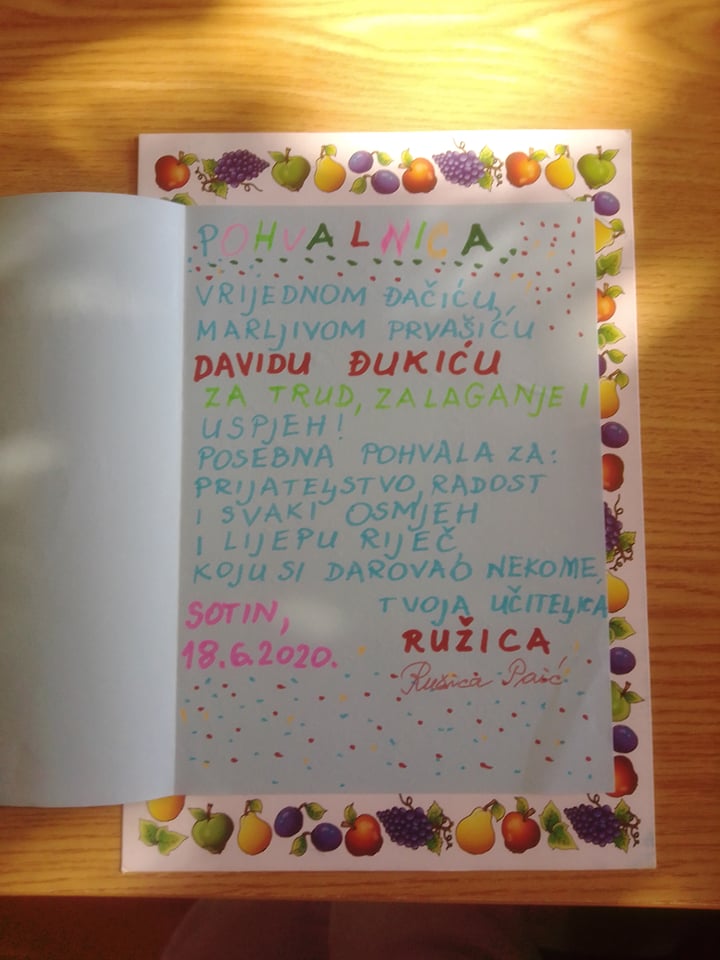 POHVALNICA
VRIJEDNOM ĐAČIĆU,
MARLJIVOM PRVAŠIĆU
DAVIDU ĐUKIĆU
ZA TRUD, ZALAGANJE I
USPJEH!
POSEBNA POHVALA ZA:
PRIJATELJSTVO, RADOST
I SVAKI OSMJEH
I LIJEPU RIJEČ,
KOJU SI DAROVAO NEKOME,
TVOJA UČITELJICA
SOTIN,
RUŽICA
18.6.2020.
Ružica Paić